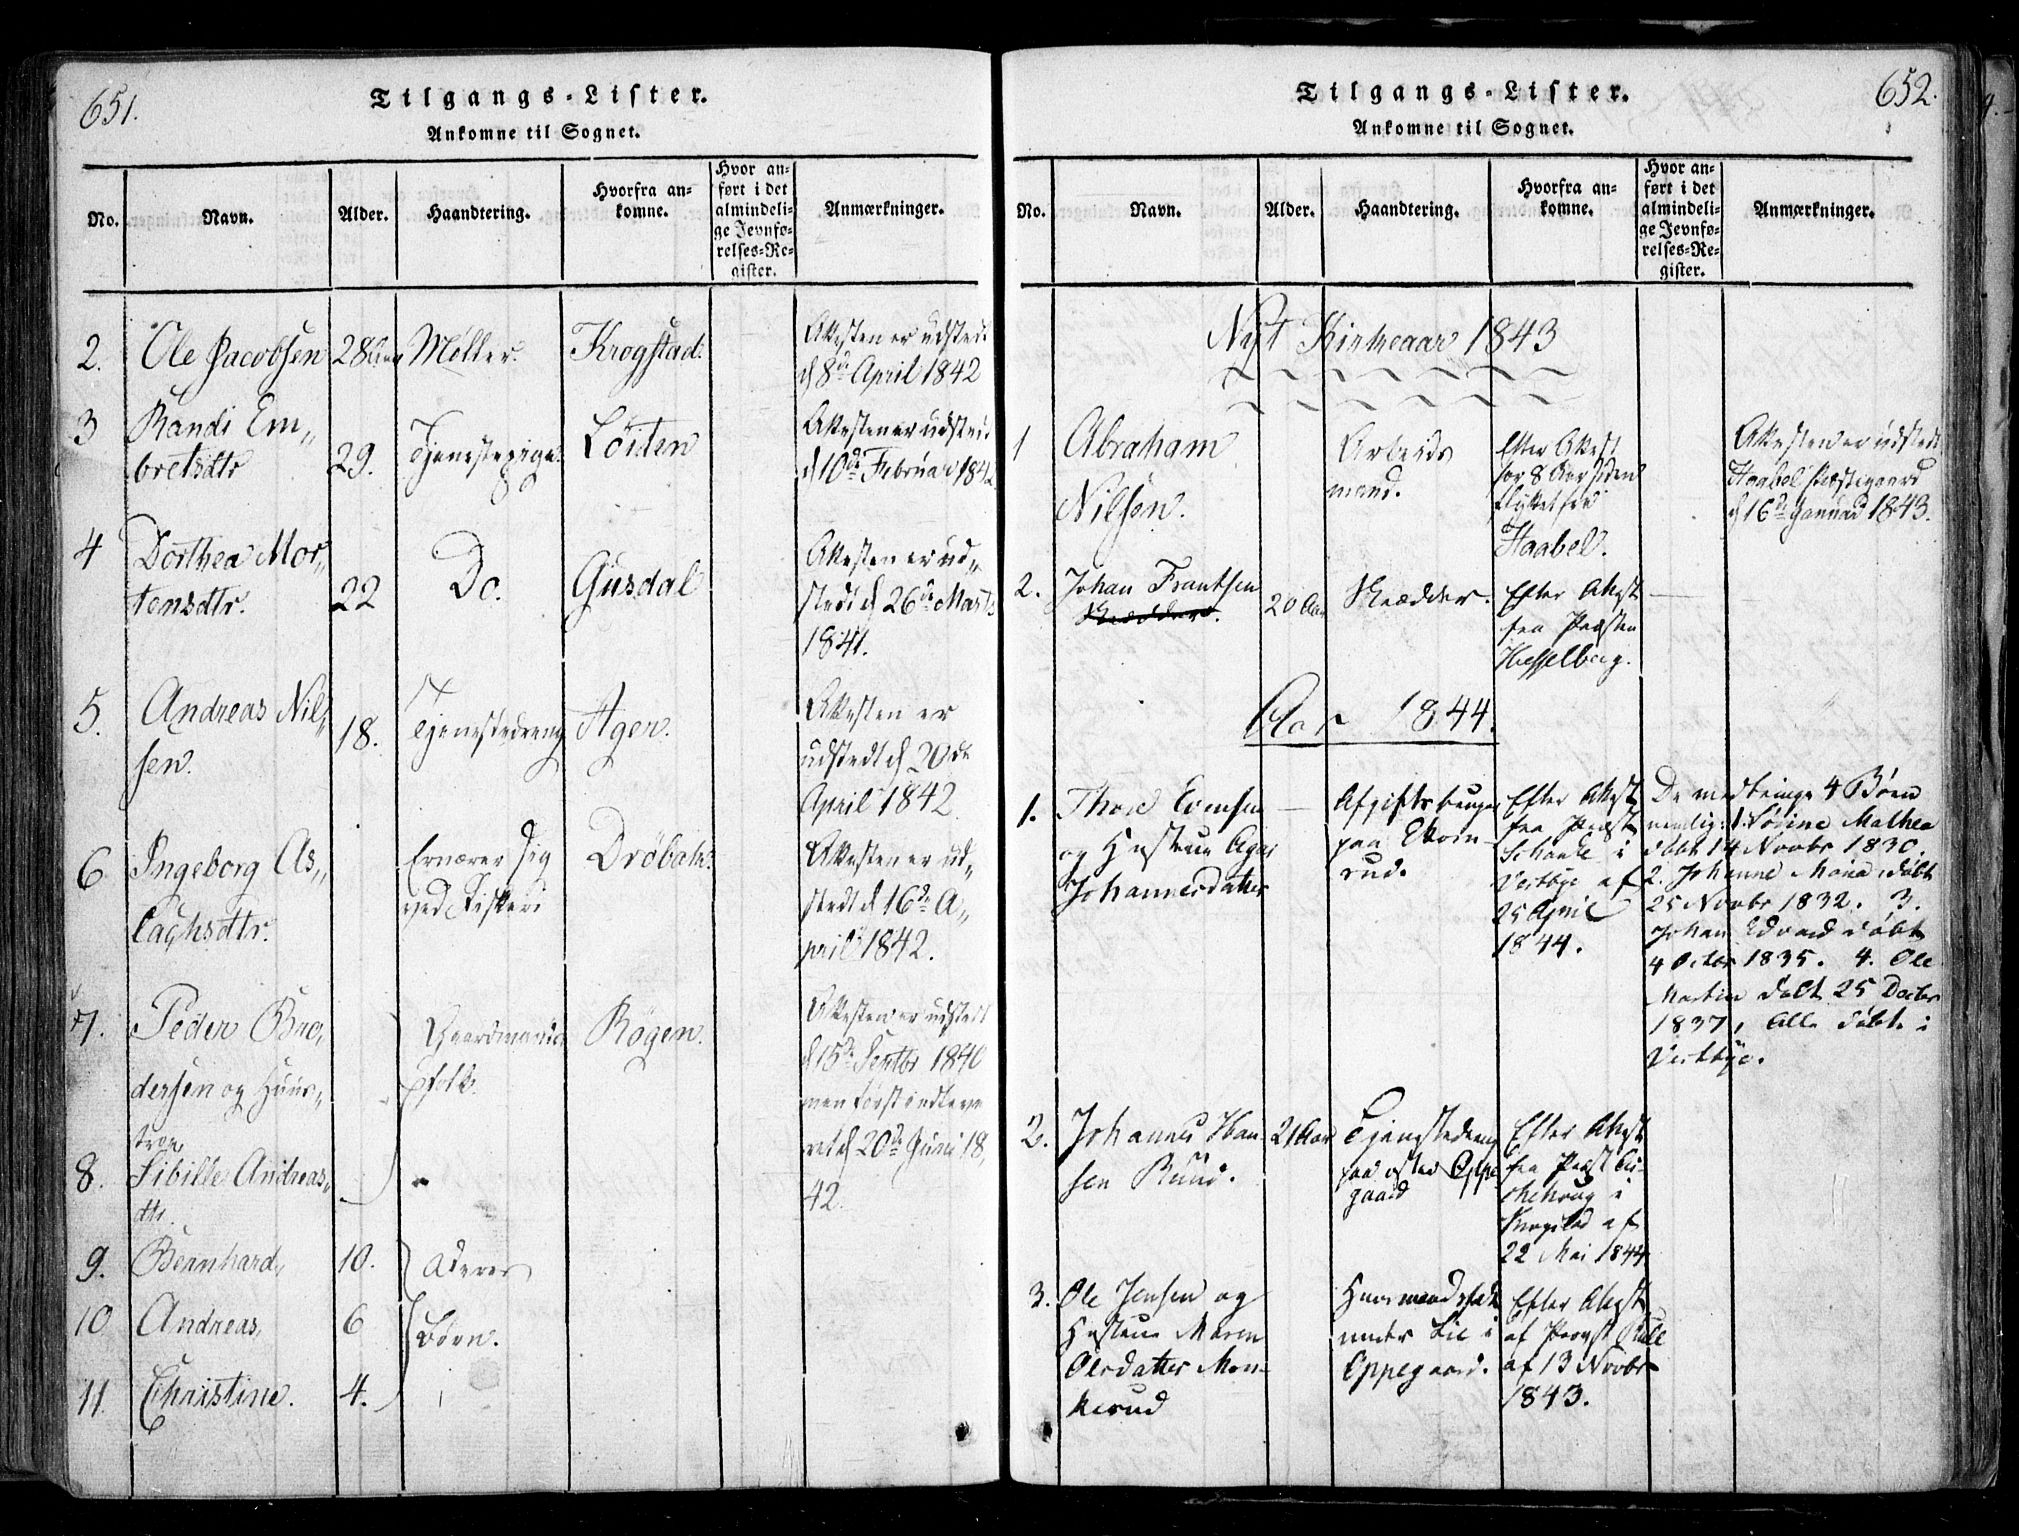 651.
Tilgangs-Lister.
Ankomne til Sognet.
No.
Navn.
Alder.
Haandtering.
Hvorfra an-
komne.
Hvor an-
ført i det
almindeli-
ge Jevnfø-
relses-Re-
gister.
Anmærkninger.
2.
Ole Jacobsen
28
Møller.
Krogstad.
Attesten er udstedt
d 8de April 1842
3
Randi Em„
bretsdtr
29.
Tjenestepige.
Löiten
Attesten er udstedt
d 10de Februar 1842
4
Dorthea Mor„
tensdtr.
22
Do.
Gusdal
Attesten er ud„
stedt d 26de Marts
1841.
5.
Andreas Nil„
sen.
18.
Tjenestedreng
Ager.
Attesten er
udstedt d 20de
April 1842.
6
Ingeborg As„
lachsdtr.
Ernærer sig
ved Fiskeri
Dröbak.
Attesten er ud„
stedt d 16de A„
pril 1842.
7.
Peder Bre„
dersen og Huus„
troe
Gaardmands
folk.
Røgen.
Attesten er udstedt
d 15de Septbr 1840
men først indleve
ret d 20de Juni 18„
42.
8.
Sibille Andreas„
dtr.
9.
Bernhard,
10.
Deres
10
Andreas,
6
Børn.
11.
Christine.
4.
652.
Tilgangs-Lister.
Ankomne til Sognet.
No.
Navn.
Alder.
Haandtering.
Hvorfra an-
komne.
Hvor an-
ført i det
almindeli-
ge Jevnfø-
relses-Re-
gister.
Anmærkninger.
Nyt Kirkeaar 1843
1
Abraham
Nilsen.
Arbeids
mand.
Efter Attest
for 8 Aar siden
flyttet fra
Haabel.
Attesten er udstedt
Haabel Præstegaard
d 16de Januar 1843.
2.
Johan Frantsen
Skrædder.
20 Aar
Skrædder.
Efter Attest
fra Præsten
Hesselberg.
Aar 1844.
1.
Thore Evensen
og Hustrue
Johannesdatter
Afgiftsbruger
paa Ekorn-
rud.
Efter Attest
fra Præst
Schanke i
Vestbye af
25 April
1844.
De medbringe 4 Børn
nemlig: 1. Sörine Mathea
døbt 14 Novbr 1830.
2. Johanne Maria døbt
25 Novbr 1832. 3.
Johan Edvard døbt
4 Octbr 1835. 4. Ole
Martin døbt 25 Decbr
1837, Alle døbte i
Vestbye.
2.
Johannes Han
sen Ruud.
21 Aar
Tjenestedreng
paa østre Oppe
gaard
Efter Attest
fra Præst
i
Krogstad af
22 Mai 1844
3.
Ole Jensen og
Hustrue Maren
Olesdatter Mon-
kerud
Huusmandsfolk
under Lie i
Oppegaard.
Efter Attest
af Provst
af 13 Novbr
1843.